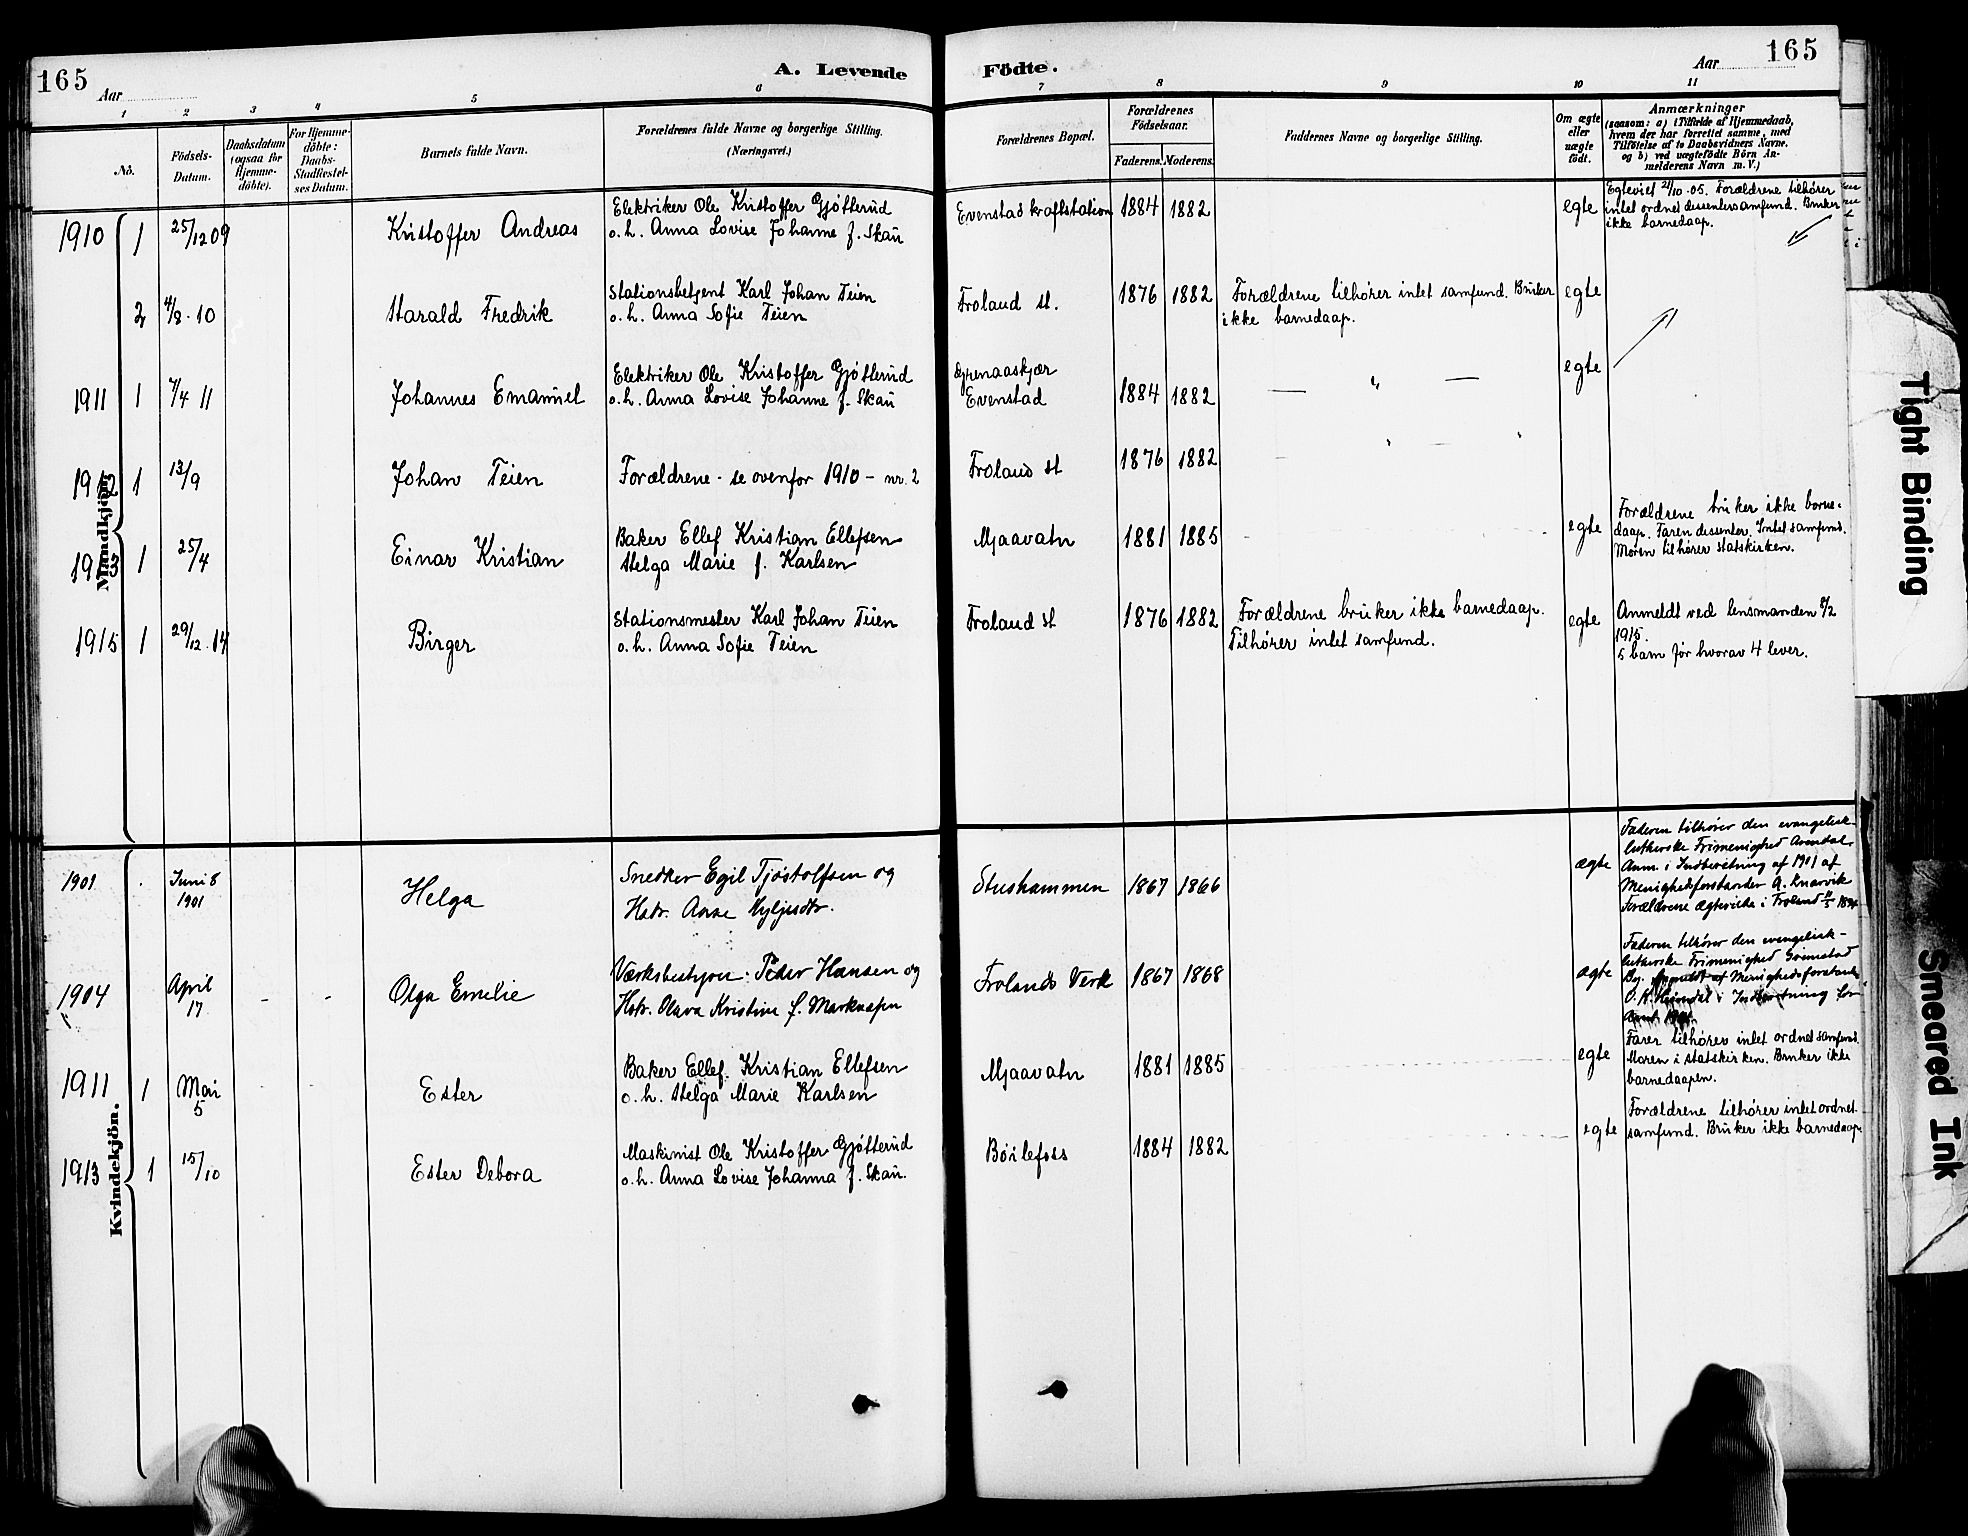 165
Aar
A. Levende
Födte.
Aar
165
1 2 3 4 5 6 7 8 9 10 11
No.
Födsels-
Datum.
Daabsdatum
(ogsaa for
Hjemme-
döbte).
For Hjemme-
döbte:
Daabs-
Stadfæstel-
ses Datum.
Barnets fulde Navn.
Forældrenes fulde Navne og borgerlige Stilling.
(Næringsvei.)
Forældrenes Bopæl.
Forældrenes
Födselsaar.
Faderens. Moderens.
Faddernes Navne og borgerlige Stilling.
Om ægte
eller
uægte
födt.
Anmærkninger
(saasom: a) i Tilfælde af Hjemmedaab,
hvem der har forrettet samme, med
Tilföielse af to Daabsvidners Navne.
og b) ved uægtefödte Börn An-
melderens Navn m. V.)
Mandkjön.
1910 1 25/12 09 Kristoffer Andreas
Elektriker Ole Kristoffer Gjøtterud
o. h. Anna Lovise Johanne f. Skau
Evenstad kraftstation 1884 1882 egte
Egteviet 21/10 - 05. Forældrene tilhører
intet ordnet dissentersamfund. Bruker
ikke barnedaap.
2 4/8 - 10 Harald Fredrik
Stationsbetjent Karl Johan Teien
o. h. Anna Sofie Teien
Froland st. 1876 1882
Forældrene tilhører intet samfund. Bruker
ikke barnedaap.
egte
1911 1 7/4 11 Johannes Emanuel
Elektriker Ole Kristoffer Gjøtterud
o. h. Anna Lovise Johanne f. Skau
Evenstad 1884 1882 — " — egte
1912 1 13/9 Johan Teien
Forældrene - se ovenfor 1910 - nr. 2
Froland st 1876 1882
1913 1 25/4 Einar Kristian
Baker Ellef Kristian Ellefsen
Helga Marie f. Karlsen
Mjaavatn 1881 1885 egte
Forældrene bruker ikke barne-
daap. Faren dissenter. Intet samfund.
Moren tilhører statskirken.
1915 1 29/12 - 14 Birger
Stationsmester Karl Johan Teien
o. h. Anna Sofie Teien
Froland st 1876 1882
Forældrene bruker ikke barnedaap.
Tilhører intet samfund.
egte
Anmeldt ved lensmanden /2
1915.
5 barn før hvorav 4 lever.
Kvindekjön.
1901 Juni 8
1901
Helga
Snedker Egil Tjøstolfsen og
Hstr.
1867 1866 ægte
Faderen tilhører den evangelisk-
lutherske Frimenighed Arendal.
Anm. i Indberetning af 1901 af
Menighedsforstander A. Knarvik
Forældrene ægteviede i Froland
1904 April
17
Olga Emilie
Værksbestyrer Peder Hansen og
Hstr. Olava Kristine f.
Frolands Verk 1867 1868 ægte
Faderen tilhører den evangelisk-
lutherske Frimenighed Grimstad
Menighedsforstand.
i Indberetning for
1911 1 Mai
5
Ester
Baker Ellef Kristian Ellefsen
o. h. Helga Marie Karlsen
Mjaavatn 1881 1885 egte
Faren tilhører intet ordnet samfund.
Moren i statskirken. Bruker ikke
barnedaapen.
1913 1 15/10 Ester Debora
Maskinist Ole Kristoffer Gjøtterud
o. h. Anna Lovise Johanna f. Skau.
Bøilefoss 1884 1882 egte
Forældrene tilhører intet ordnet
samfund. Bruker ikke barnedaap.
Tight Binding
Smeared Ink